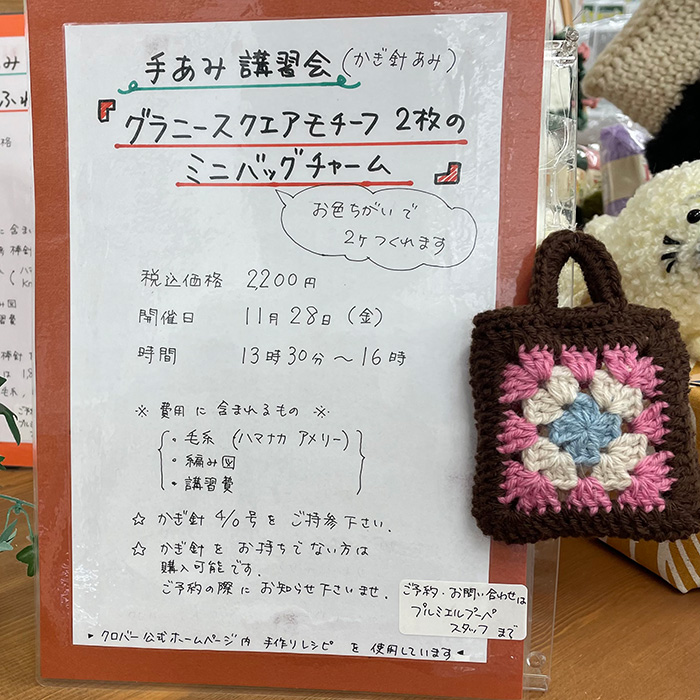 手あみ 講習会 (かぎ針あみ)
『グラニースクエアモチーフ 2枚の
ミニバッグチャーム』
お色ちがいで
2ヶつくれます
税込価格 2,200円
開催日 11月28日(金)
時間 13時30分〜16時
※ 費用に含まれるもの ※
・毛糸 (ハマナカ アメリー)
・編み図
・講習費
☆ かぎ針 4/0号 を ご持参下さい.
☆ かぎ針を お持ちでない方は
購入可能です.
ご予約の際に お知らせ下さいませ.
ご予約・お問い合わせは
プルミエルプーペ
スタッフ まで
▸ クロバー公式ホームページ内 手作りレシピ を 使用しています ◂